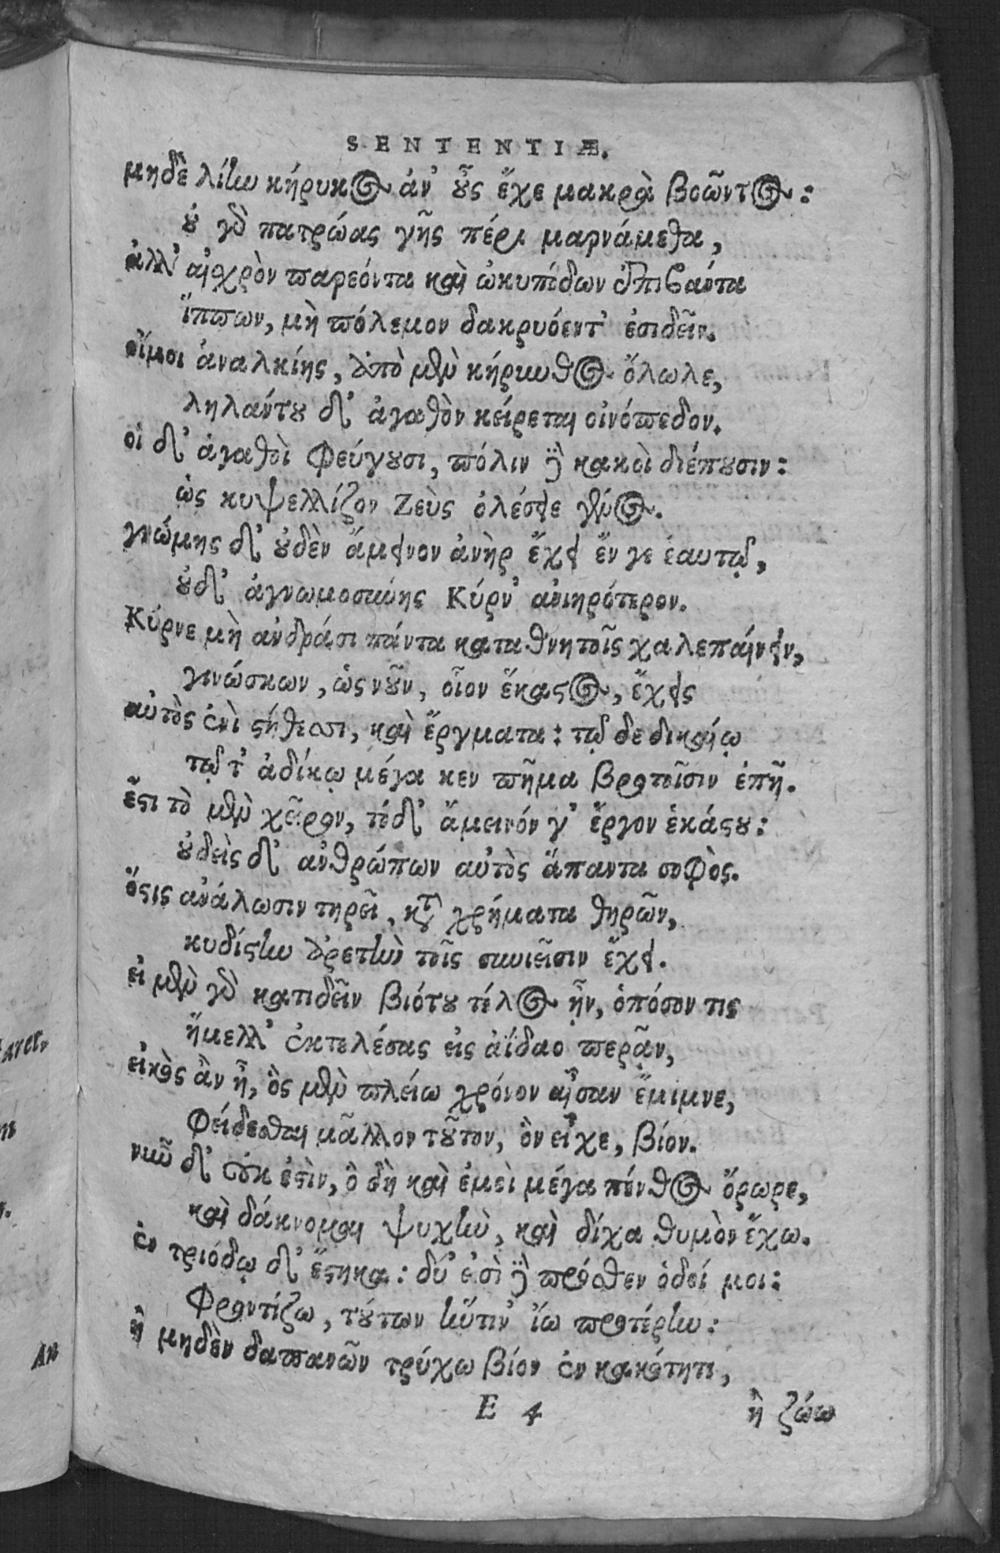 SENTENTIÆ.
μηδὲ λίην κήρυκος ἀν' οὖς ἔχε μακρὰ βοῶντος:
οὐ γὰρ πατρώας γῆς πέρι μαρνάμεθα,
ἀλλ' αἰσχρὸν παρεόντα καὶ ὠκυπόδων ἐπιβάντα
ἵππων, μὴ πόλεμον δακρυόεντ' ἐσιδεῖν.
οἴμοι ἀναλκίης, ἀπὸ μὲν κήρινθος ὄλωλε,
ληλάντου δ' ἀγαθὸν κείρεται οἰνόπεδον.
οἱ δ' ἀγαθοὶ φεύγουσι, πόλιν δὲ κακοὶ διέπουσιν:
ὡς κυψελλίζον Ζεὺς ὀλέσειε γένος.
γνώμης δ' οὐδὲν ἄμεινον ἀνὴρ ἔχει ἔν γε ἑαυτῷ,
οὐδ' ἀγνωμοσύνης Κύρν' ἀνιηρότερον.
Κύρνε μὴ ἀνδράσι πάντα κατα θνητοῖς χαλεπαίνειν,
γινώσκων, ὡς νοῦν, οἷον ἕκαστος, ἔχεις
αὐτὸς ἐνὶ στήθεσσι, καὶ ἔργματα: τῷ δε δικαίῳ
τῷ τ' ἀδίκῳ μέγα κεν πῆμα βροτοῖσιν ἐπῇ.
ἔστι τὸ μὲν χεῖρον, τόδ' ἄμεινόν γ' ἔργον ἑκάστου:
οὐδεὶς δ' ἀνθρώπων αὐτὸς ἅπαντα σοφὸς.
ὅστις ἀνάλωσιν τηρεῖ, κατὰ χρήματα θηρῶν,
κυδίστην ἀρετὴν τοῖς συνιεῖσιν ἔχει.
εἰ μὲν γὰρ κατιδεῖν βιότου τέλος ἦν, ὁπόσον τις
ἤμελλ' ἐκτελέσας εἰς ἀΐδαο περᾷν,
εἰκὸς ἂν ἦ, ὃς μὲν πλείω χρόνον αἶσαν ἔμιμνε,
φείδεσθαι μᾶλλον τοῦτον, ὃν εἶχε, βίον.
νῦν δ' οὐκ ἐστὶν, ὃ δὴ καὶ ἐμεὶ μέγα πένθος ὄρωρε,
καὶ δάκνομαι ψυχὴν, καὶ δίχα θυμὸν ἔχω.
ἐν τριόδῳ δ' ἕστηκα: δύ' εἰσὶ δὲ πρόσθεν ὁδοί μοι:
φροντίζω, τούτων ἥντιν' ἴω προτέρην:
ἢ μηδὲν δαπανῶν τρύχω βίον ἐν κακότητι,
E 4 ἢ ζώω